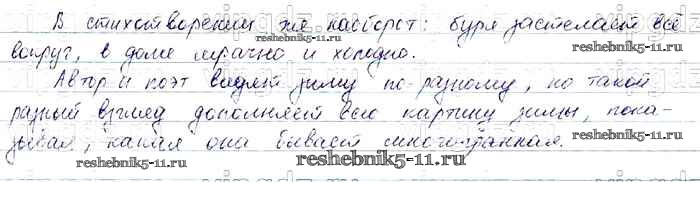 В стихотворении же наоборот: буря застелает всё
вокруг, в доме мрачно и холодно.
reshebnik5-11.ru
reshebnik5-11.ru
Автор и поэт видят зиму по-разному, но такой
разный взгляд дополняет всю картину зимы, пока-
reshebnik5-11.ru
зывая, какая она бывает многогранная.
reshebnik5-11.ru
reshebnik5-11.ru